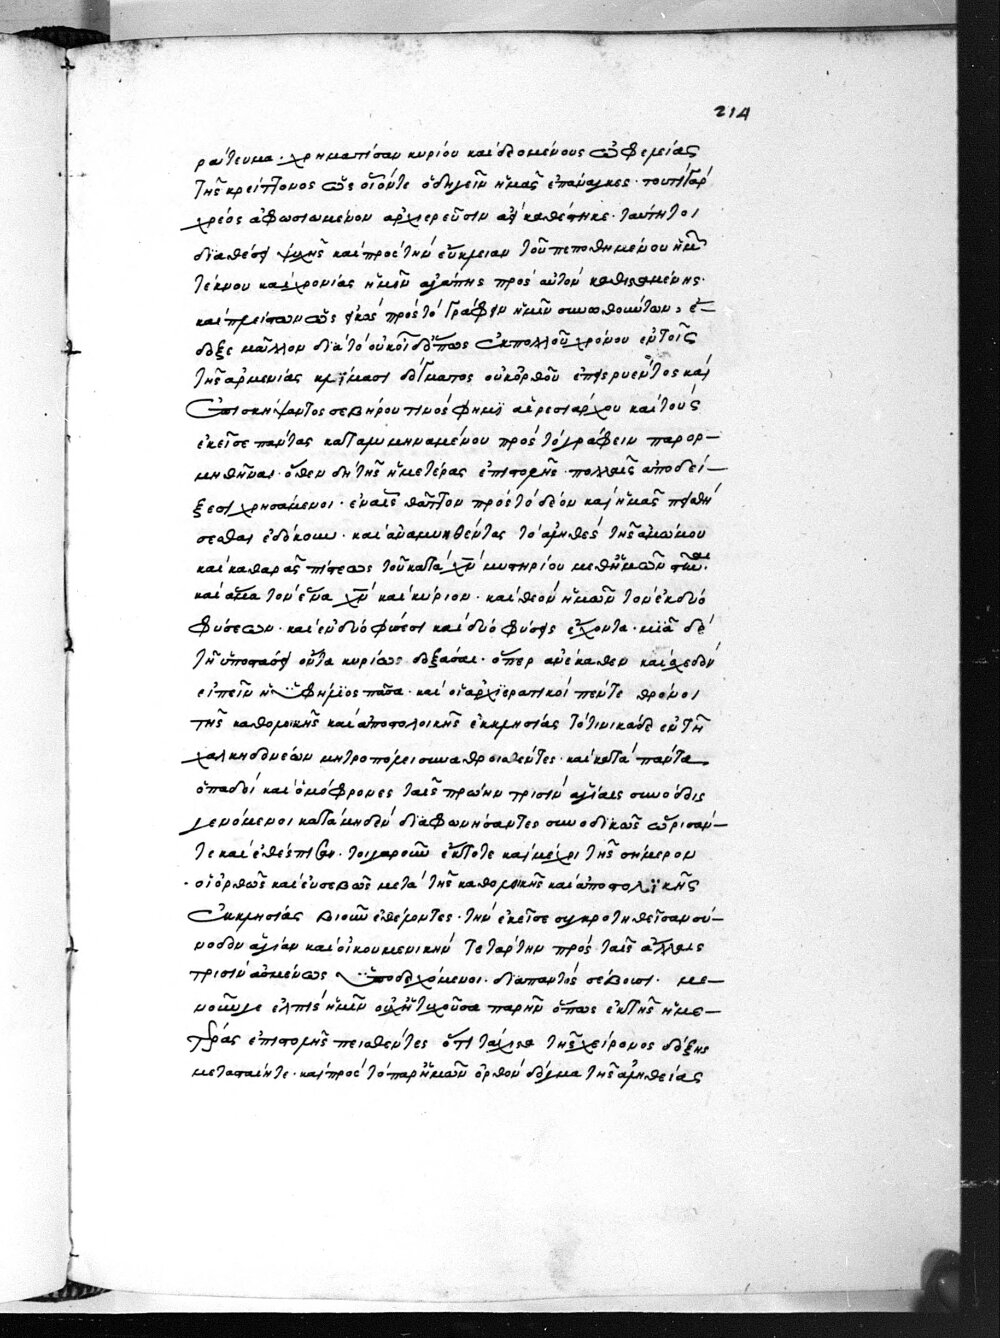 214
ράτευμα. χρηματίσαν κυρίου καὶ δεομένους ὠφελείας
τῆς κρείττονος ὡς οἷόν τε ὁδηγεῖν ἡμᾶς ἐπάναγκες. τουτὶ γὰρ
χρέος ἀφωσιωμένον ἀρχιερεῦσιν ἀεὶ καθέστηκε. ταύτῃ τοι
διαθέσει ψυχῆς καὶ πρὸς τὴν εὔκλειαν τοῦ πεποθημένου ἡμῶν
τέκνου καὶ χρονίας ἡμῖν ἀγάπης πρὸς αὐτὸν καθισταμένης.
καὶ πλείστων ὡς εἰκὸς πρὸς τὸ γράφειν ἡμῖν συνωθούντων, ἔ-
δοξε μᾶλλον διὰ τὸ οὐκ οἶδ' ὅπως ἐκ πολλοῦ χρόνου ἐν τοῖς
τῆς ἀρμενίας κλίμασι δόγματος οὐκ ὀρθοῦ ἐπεισρυέντος καὶ
ἐπισκήψαντος σεβήρου τινός φημι αἱρεσιάρχου καὶ τοὺς
ἐκεῖσε πάντας καταλυμηναμένου πρὸς τὸ γράφειν παρορ-
μηθῆναι. ὅθεν δὴ τῆς ἡμετέρας ἐπιστολῆς πολλαῖς ἀποδεί-
ξεσι χρησάμενοι. ἐν αἷς θᾶττον πρὸς τὸ δέον καὶ ἡμᾶς πεισθή
σεσθαι ἐδόκουν. καὶ ἀναμνησθέντας τὸ ἀληθὲς τῆς ἀμώμου
καὶ καθαρᾶς πίστεως τοῦ κατὰ χν μυστηρίου μεθ' ἡμῶν
καὶ ἅμα τὸν ἕνα χν καὶ κύριον. καὶ θεὸν ἡμῶν τὸν ἐκ δύο
φύσεων. καὶ ἐν δύο φύσεσι καὶ δύο φύσεις ἔχοντα. μιᾷ δὲ
τῇ ὑποστάσει ὄντα κυρίως δοξάσαι. ὅπερ ἀνέκαθεν καὶ σχεδὸν
εἰπεῖν ἡ ὑφήλιος πᾶσα. καὶ οἱ ἀρχιερατικοὶ πέντε θρόνοι
τῆς καθολικῆς καὶ ἀποστολικῆς ἐκκλησίας τὸ τηνικάδε ἐν τῇ
χαλκηδονέων μητροπόλει συναθροισθέντες. καὶ κατὰ πάντα
ὀπαδοὶ καὶ ὁμόφρονες ταῖς πρώην τρισὶν ἁγίαις συνόδοις
γενόμενοι κατὰ μηδὲν διαφωνήσαντες συνοδικῶς ὥρισάν-
τε καὶ ἐθέσπισαν. τοιγαροῦν ἔκτοτε καὶ μέχρι τῆς σήμερον
οἱ ὀρθῶς καὶ εὐσεβῶς μετὰ τῆς καθολικῆς καὶ ἀποστολικῆς
ἐκκλησίας βιοῦν ἐθέλοντες. τὴν ἐκεῖσε συγκροτηθεῖσαν σύ-
νοδον ἁγίαν καὶ οἰκουμενικὴν τετάρτην πρὸς ταῖς ἄλλαις
τρισὶν ἀσμένως ὑποδεχόμενοι. διαπαντὸς σέβουσι. με-
νοῦνγε ἐλπὶς ἡμῖν οὐχ ἡ τυχοῦσα παρῆν ὅπως ἐκ τῆς ἡμε-
τέρας ἐπιστολῆς πεισθέντες ὅτι τάχιστα τῆς χείρονος δόξης
μεταστῆτε. καὶ πρὸς τὸ παρ' ἡμῶν ὀρθὸν δόγμα τῆς ἀληθείας